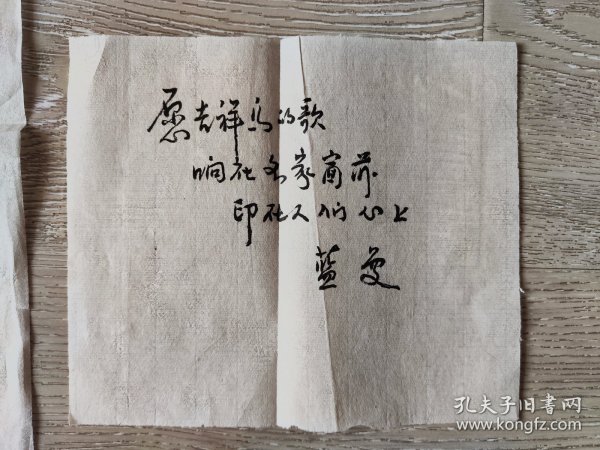 愿吉祥鸟的歌
响在各家窗前
印在人们心上
蓝曼
孔夫子旧书网
www.kongfz.com